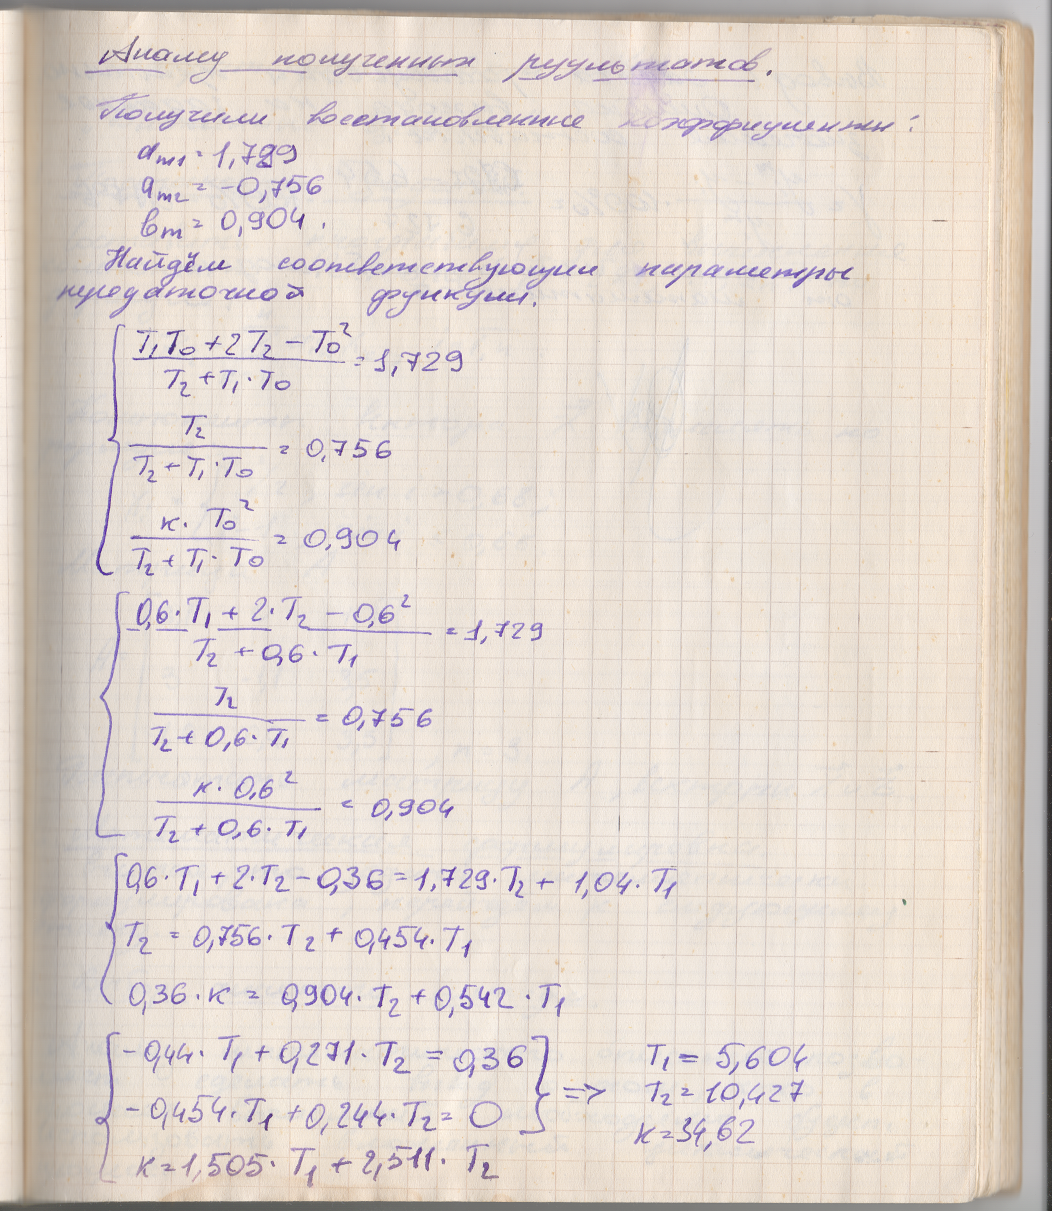 Анализ полученных результатов.
Получили восстановленные коэффициенты:
am1 = 1,729
am2 = -0,756
bm = 0,904.
Найдём соответствующии параметры
передаточной функции.
(T1T0 + 2T2 - T0²) / (T2 + T1·T0) = 1,729
T2 / (T2 + T1·T0) = 0,756
к·T0² / (T2 + T1·T0) = 0,904
(0,6·T1 + 2·T2 - 0,6²) / (T2 + 0,6·T1) = 1,729
T2 / (T2 + 0,6·T1) = 0,756
к·0,6² / (T2 + 0,6·T1) = 0,904
0,6·T1 + 2·T2 - 0,36 = 1,729·T2 + 1,04·T1
T2 = 0,756·T2 + 0,454·T1
0,36·к = 0,904·T2 + 0,542·T1
-0,44·T1 + 0,271·T2 = 0,36
-0,454·T1 + 0,244·T2 = 0
к = 1,505·T1 + 2,511·T2
=>
T1 = 5,604
T2 = 10,427
к = 34,62